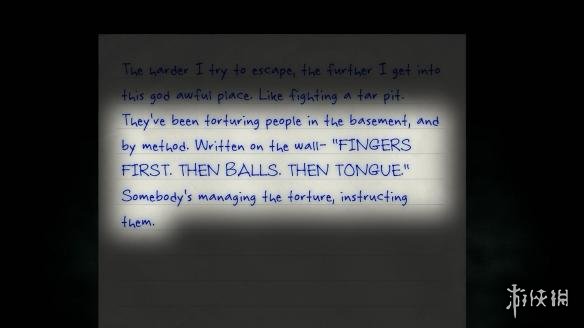 The harder I try to escape, the further I get into
this god awful place. Like fighting a tar pit.
They've been torturing people in the basement, and
by method. Written on the wall- "FINGERS
FIRST. THEN BALLS. THEN TONGUE."
Somebody's managing the torture, instructing
them.
游侠网